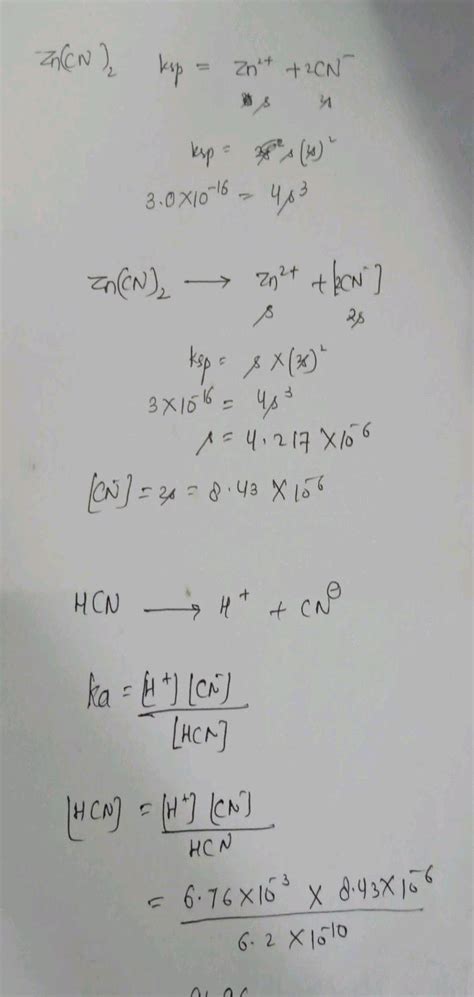 Zn(CN)₂ ksp = Zn²⁺ + 2CN⁻
s 2s
ksp = s(2s)²
3.0×10⁻¹⁶ = 4s³
Zn(CN)₂ → Zn²⁺ + [2CN⁻]
s 2s
ksp = s×(2s)²
3×10⁻¹⁶ = 4s³
s = 4.217×10⁻⁶
[CN⁻] = 2s = 8.43×10⁻⁶
HCN → H⁺ + CN⊖
ka = [H⁺][CN⁻]
[HCN]
[HCN] = [H⁺][CN⁻]
HCN
= 6.76×10⁻³ × 8.43×10⁻⁶
6.2×10⁻¹⁰